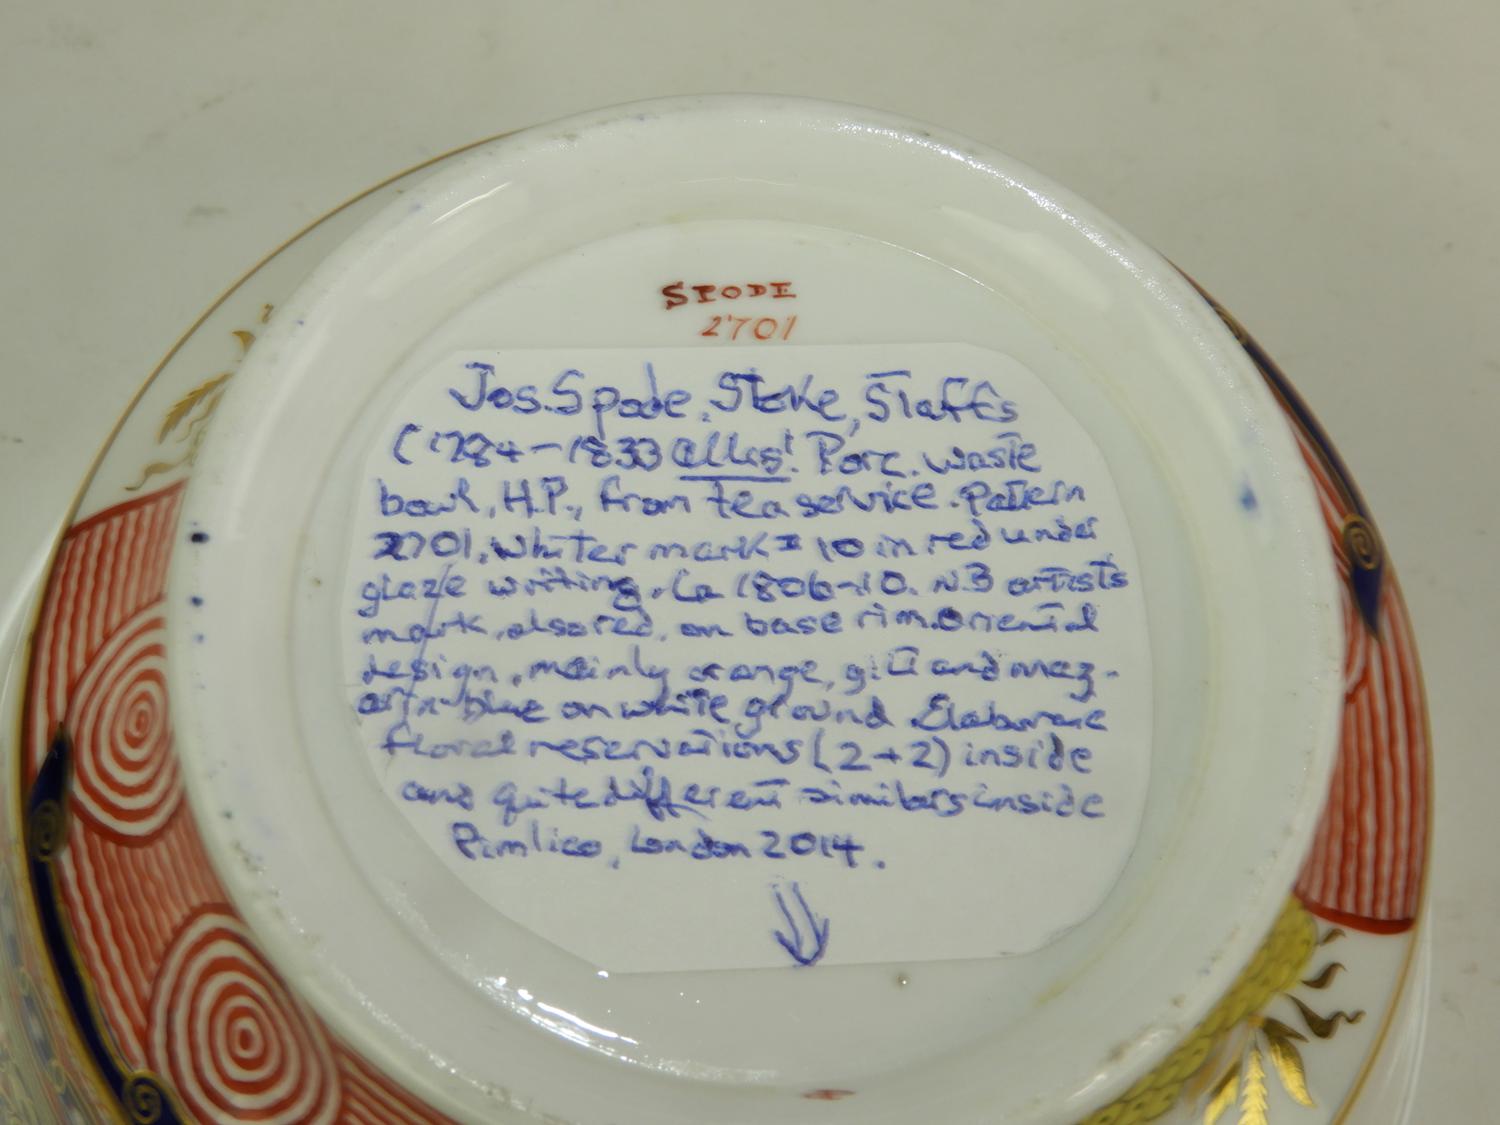 SPODE
2701
Jos. Spode, Stoke, Staffs
(1784-1833 alias! Porc. waste
bowl, H.P., from tea service. Pattern
2701, Whiter mark 10 in red under
glaze writing. Ca 1806-10. N.B artists
mark, also red, on base rim. Oriental
design, mainly orange, gilt and maz-
arin-blue on white ground. Elaborate
floral reservations (2+2) inside
and quite different similars inside
Pimlico, London 2014.